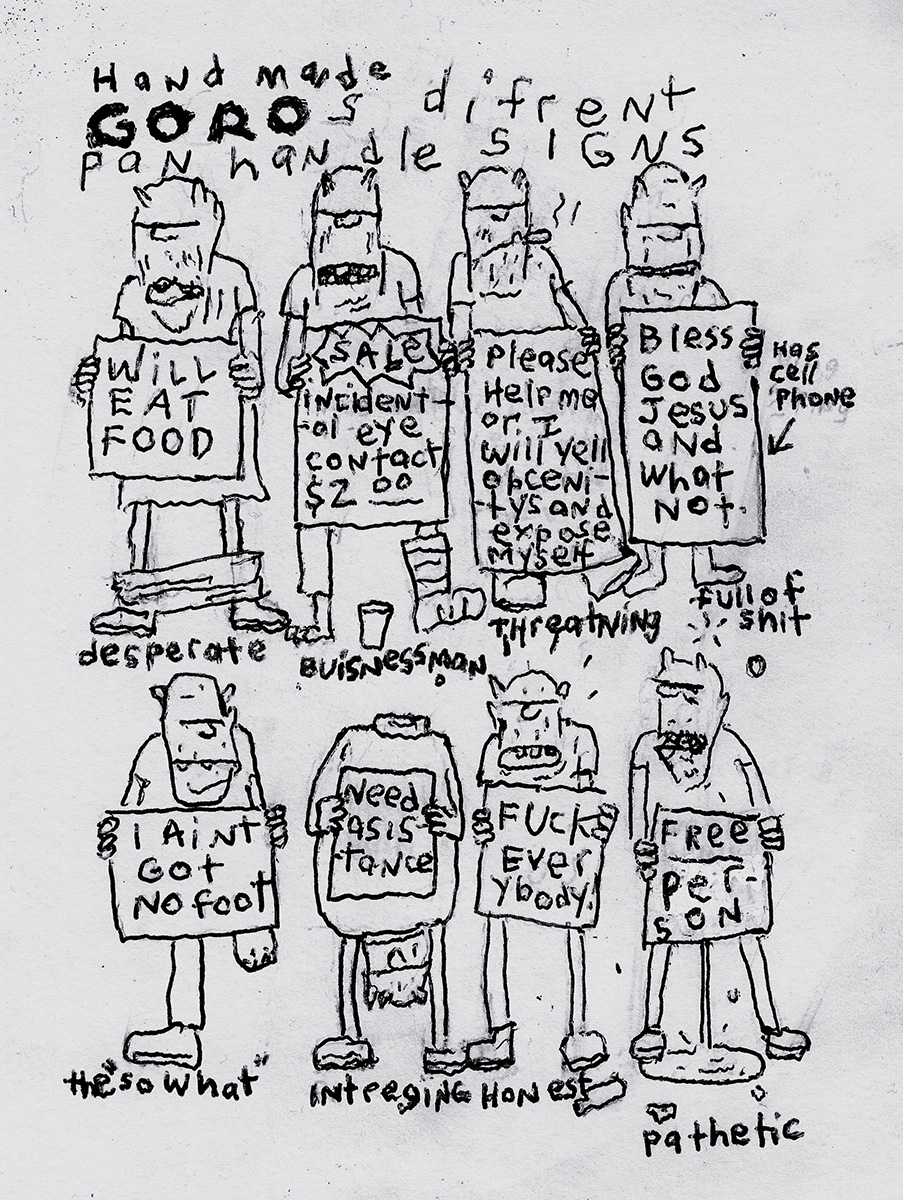 Hand made
GOROS difrent
pan handle SIGNS
WiLL
EAT
FOOD
SALE
incident-
al eye
contact
$2 00
please
Help me
or I
will yell
obceni-
tys and
expose
myself
Bless
God
Jesus
and
What
Not.
HAS
cell
PHONE
desperate
BUiSNESSMAN
THreatNiNg
full of
shit
i AiNt
Got
No foot
Need
asis-
tance
FUCK
Ever
ybody.
FREE
per-
SON
the "so what"
INtregiNg
HONEST
pathetic